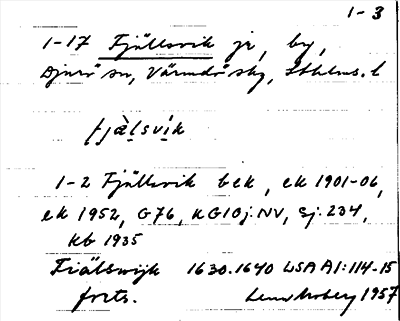 1-3
1-17 Fjällsvik jr, by,
Djurö sn, Värmdö skg, Sthlms. l
fjä̀lsvík
1-2 Fjällsvik bek, ek 1901-06,
ek 1952, G76, KG10j. NV, Sj. 234,
kb 1935
Fiälswijk 1630.1640 LSA A1:114-15
forts. 1957